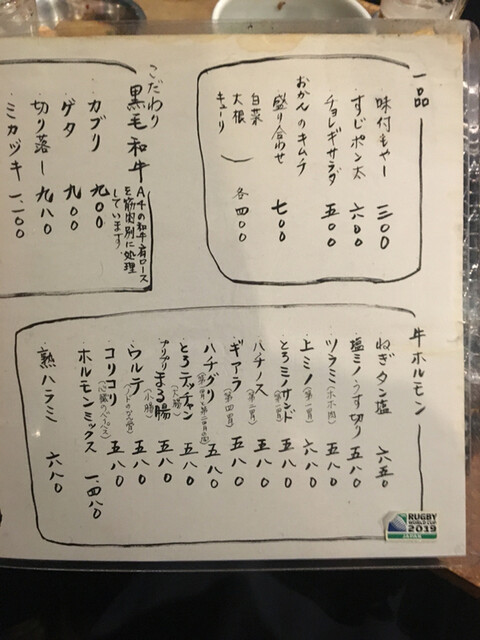 一品
味付もやし 三〇〇
すじポン太 六〇〇
チョレギサラダ 五〇〇
おかんのキムチ
盛り合わせ 七〇〇
白菜
大根 各四〇〇
キューリ
こだわり
黒毛和牛
A4の和牛肩ロース
を筋肉別に処理
しています。
カブリ 九〇〇
ゲタ 九〇〇
切り落し 九八〇
ミカヅキ 一、一〇〇
牛ホルモン
ねぎタン塩 六五〇
塩ミノうす切り 五八〇
ツラミ(ホホ肉) 五八〇
上ミノ(第一胃) 六八〇
とろミノサンド(第一胃) 五八〇
ハチノス(第二胃) 五八〇
ギアラ(第四胃) 五八〇
ハチグリ 五八〇
とろテッチャン(大腸) 五八〇
プリプリまる腸(小腸) 五八〇
ウルテ 五八〇
コリコリ 五八〇
ホルモンミックス 一、四八〇
熟ハラミ 六八〇
RUGBY
WORLD CUP
2019
JAPAN